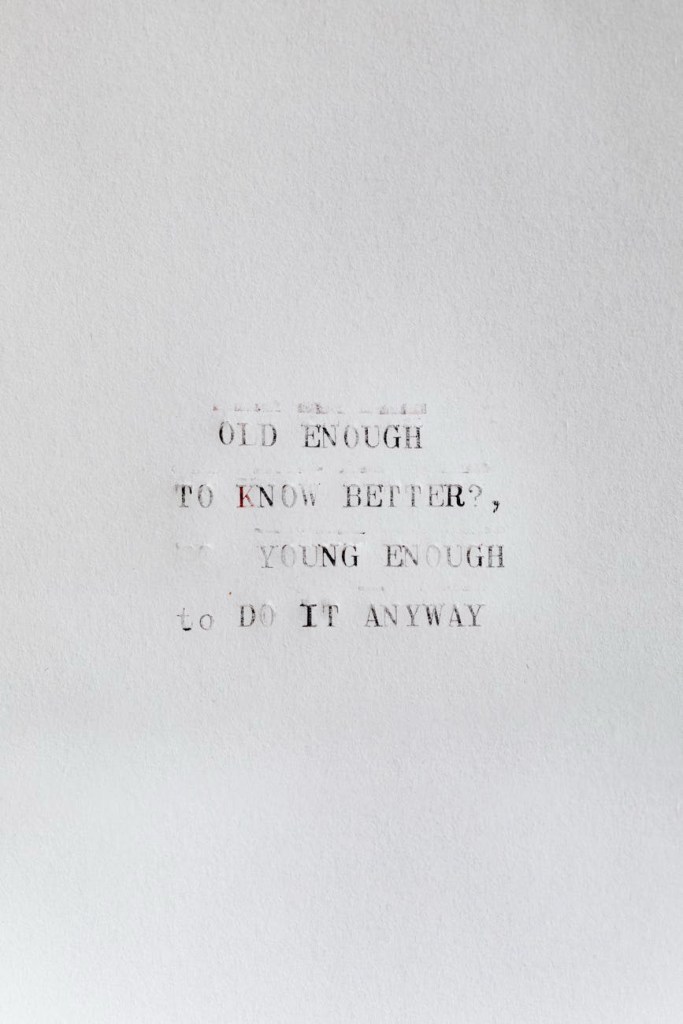 OLD ENOUGH
TO KNOW BETTER?,
YOUNG ENOUGH
to DO IT ANYWAY